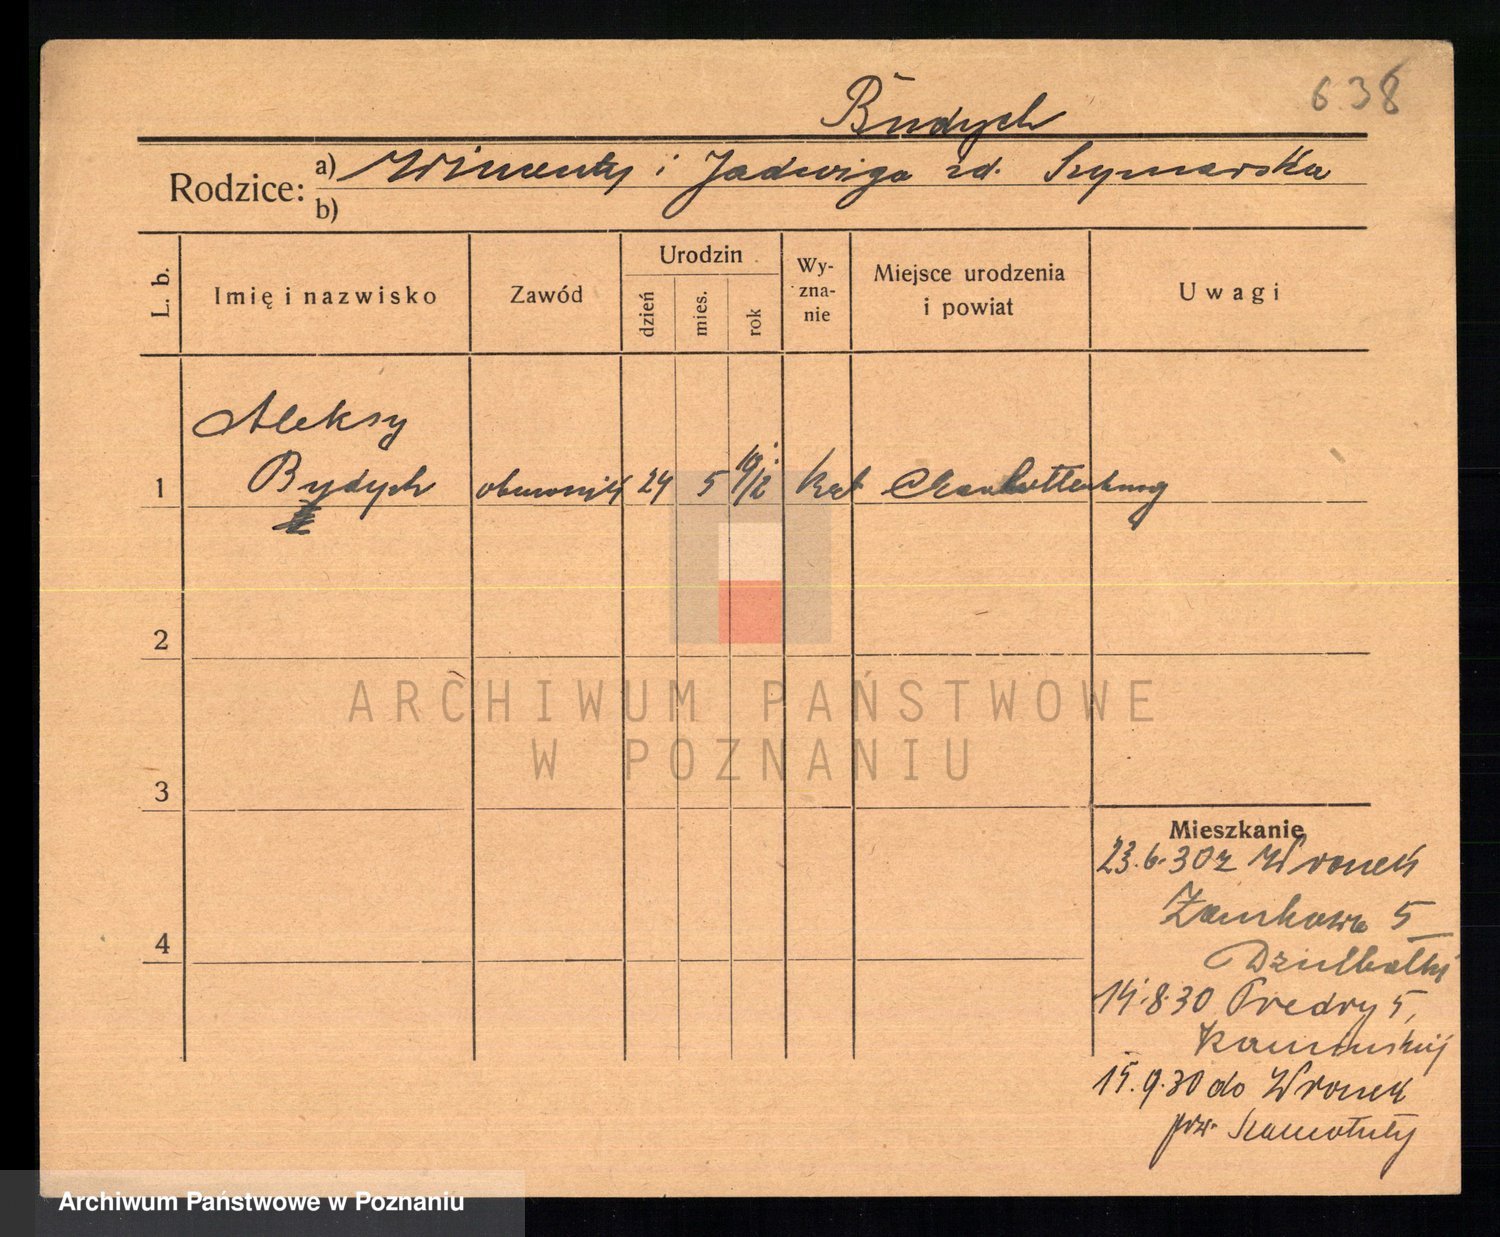 638
Budych
Rodzice: a) Wincenty i Jadwiga zd. Szymańska
b)
L. b.
Imię i nazwisko
Zawód
Urodzin
dzień
mies.
rok
Wy-
zna-
nie
Miejsce urodzenia
i powiat
Uwagi
Aleksy
1 Bydych obuwnik 24 5 1912 kat Charlottenburg
2
3
4
ARCHIWUM PAŃSTWOWE
W POZNANIU
Mieszkanie
23.6.30 z Wronek
Zamkowa 5
14.8.30 Fredry 5,
15.9.30 do Wronek
pow. Szamotuły
Archiwum Państwowe w Poznaniu